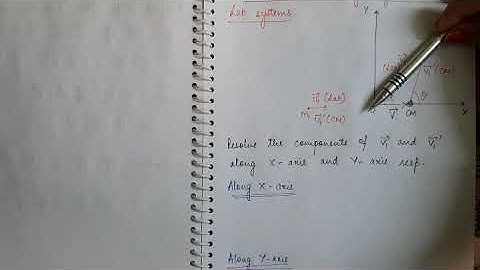 Lab systems
y
v₁' (CM)
θ
v₁ (Lab)
m₁
v₁' (CM)
V CM
x
Resolve the components of v₁ and v₁'
along X-axis and Y-axis resp.
Along X-axis
Along Y-axis